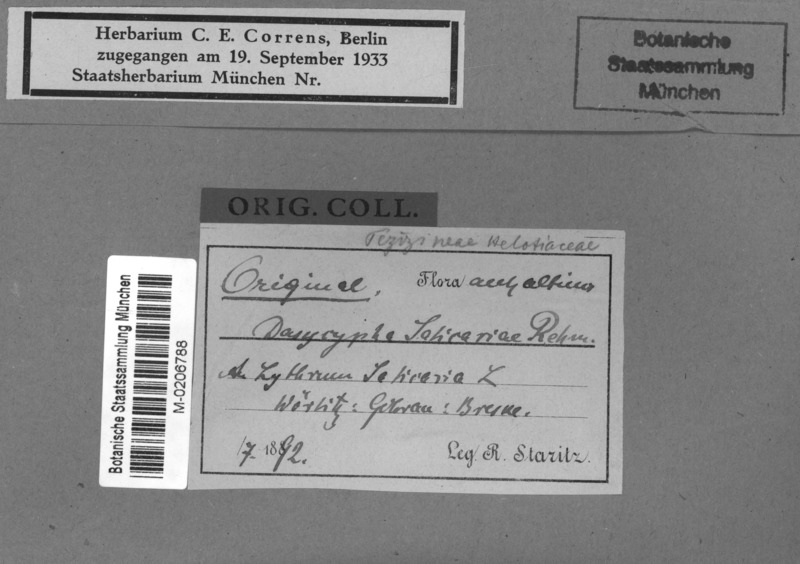 Herbarium C. E. Correns, Berlin
zugegangen am 19. September 1933
Staatsherbarium München Nr.
Botanische
Staatssammlung
München
ORIG. COLL.
Pezizineae Helotiaceae
Original. Flora anhaltina
Dasycypha Salicariae Rehm.
An Lythrum Salicaria L
Wörlitz:
/7. 1892. Leg. R. Staritz.
Botanische Staatssammlung München
M-0206788